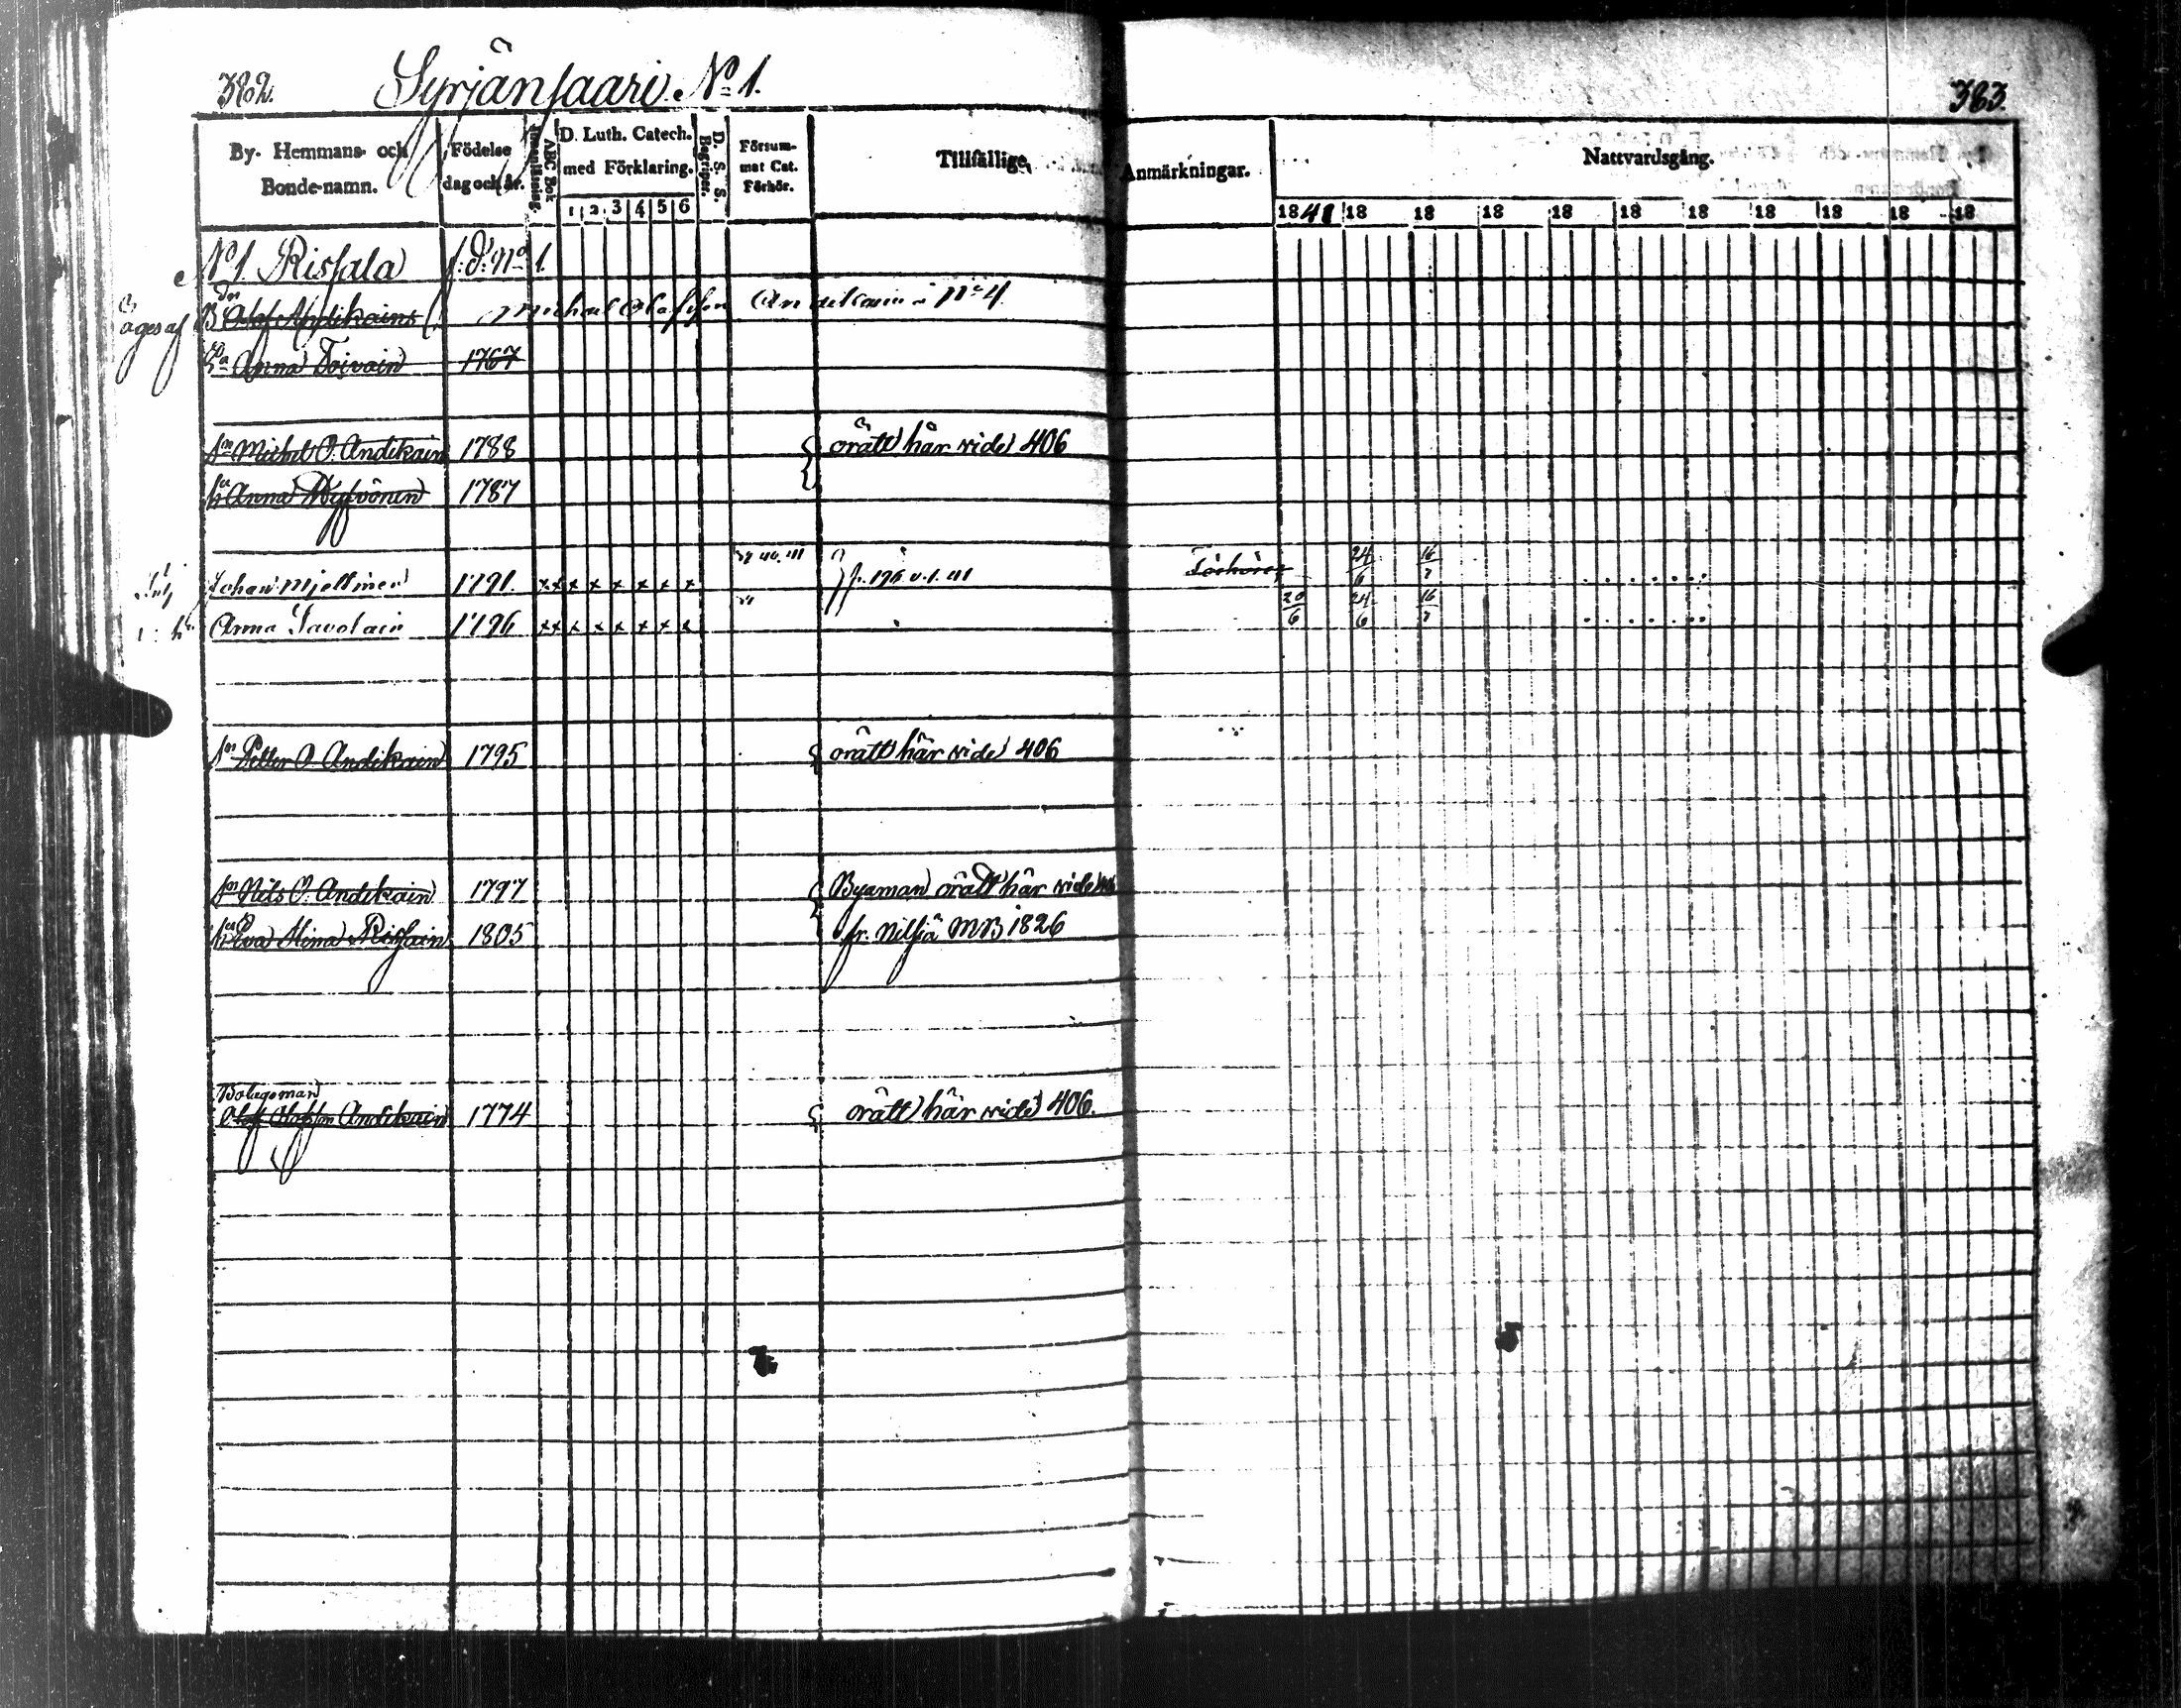 382.
Syrjänsaari N:o 1.
383.
By- Hemmans- och Bonde-namn.
Födelse dag och år.
Innanläsning.
ABC Bok
D. Luth. Catech. med Förklaring.
1 2 3 4 5 6
D. S. S. Begriper.
Försummat Cat. Förhör.
Tillfällige Anmärkningar.
Nattvardsgång.
1841 18 18 18 18 18 18 18 18 18 18
N:o 1. Rissala f. d. N:o 1.
äges af B Olof Andikains Michael Olofsson Andikain i N:o 4
Anna Toivain 1767
sn Michel O. Andikain 1788 orätt här vide 406
hu Anna 1787
Johan Mjeltiner 1791. x x x x x x x x
24/6 16/7
Anna Savolain 1796 x x x x x x x x 20/6 24/6 16/7
sn Petter O. Andikain 1795 orätt här vide 406
sn Nils O. Andikain 1797 Byaman orätt här vide
hu Eva Stina Rissain 1805 fr. Nilsiä MB 1826
Bolagsman
Olof Olofsson Andikain 1774 orätt här vide 406.